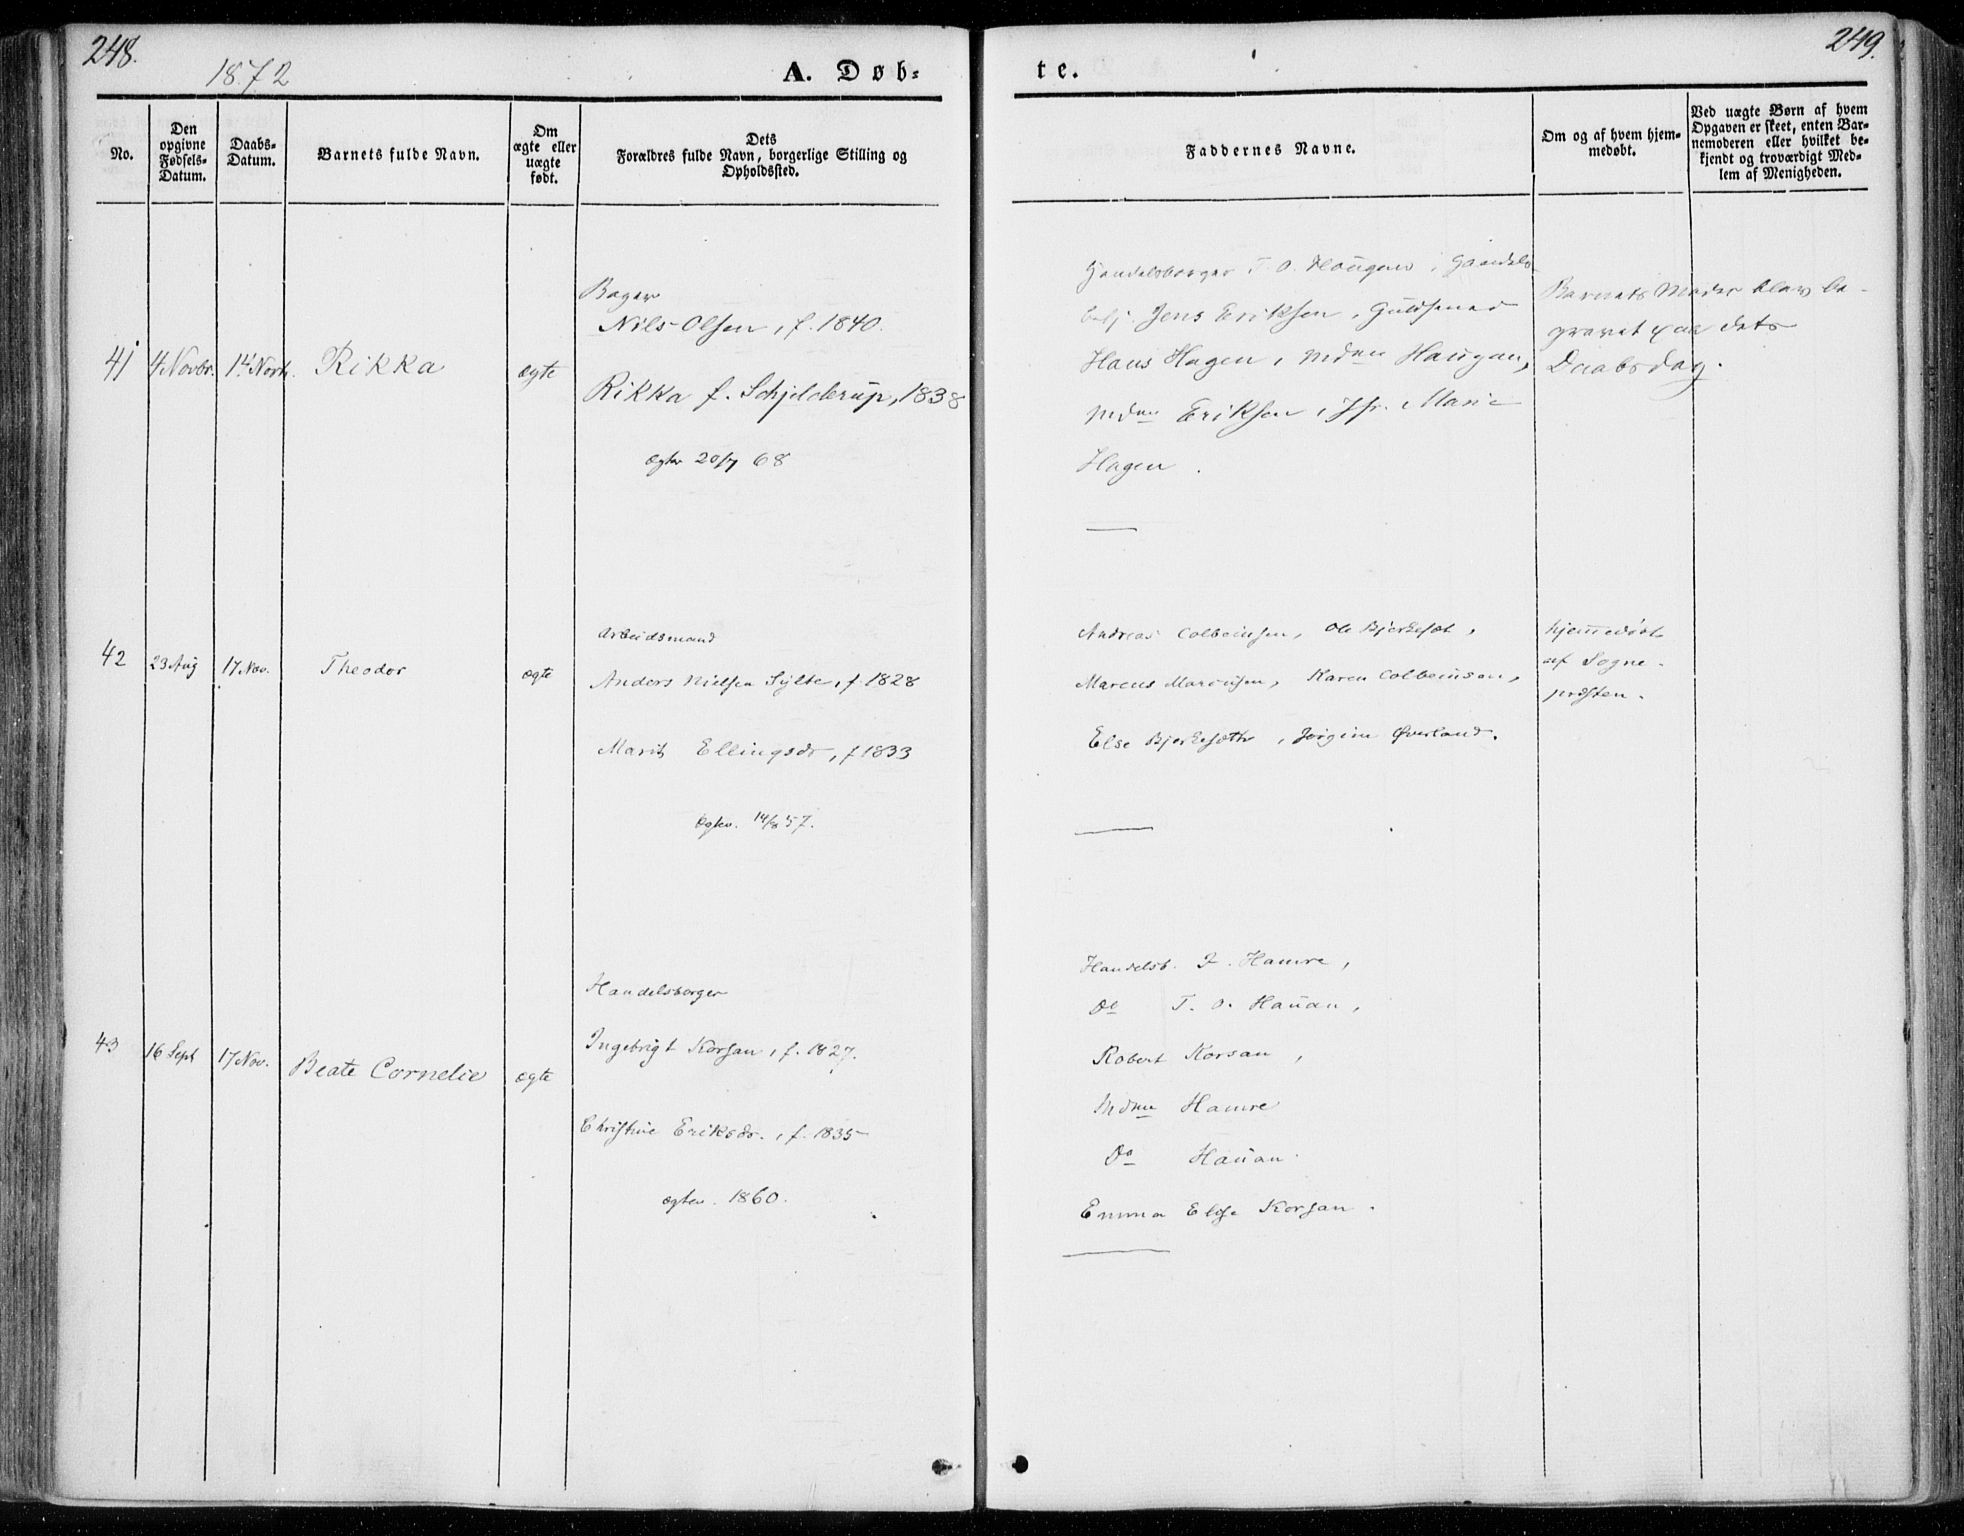 248.
1872
A. Døb-
te.
249.
No.
Den opgivne Fødsels-Datum.
Daabs-Datum.
Barnets fulde Navn.
Om ægte eller uægte født.
Dets Forældres fulde Navn, borgerlige Stilling og Opholdssted.
Faddernes Navne.
Om og af hvem hjem-medøbt.
Ved uægte Børn af hvem Opgaven er skeet, enten Bar-nemoderen eller hvilket be-kjendt og troværdigt Med-lem af Menigheden.
41 4 Novbr. 14 Novb. Rikka ægte
Bager
Nils Olsen, f. 1840.
Rikka f. Schjelderup, 1838
Ægtev 20/7 68
Handelsborger T. O. Haugan, Handels-
betj. Jens Eriksen, Guldsmed
Hans Hagen, Mdme Haugan,
Mdme Eriksen, Jfr. Marie
Hagen.
Barnets Moder blev be-
gravet paa dets
Daabsdag.
42 23 Aug 17 Nov. Theodor ægte
Arbeidsmand
Anders Nielsen Sylte, f. 1828
Marit Ellingsdr, f 1833
Ægtev. 14/8 57.
Andreas Colbeinsen, Ole Bjerkesæt,
Marcus Colbeinsen, Karen Colbeinsen,
Else Bjerkesæth, Jørgine Øverland.
hjemmedøbt
af Sogne-
præsten.
43 16 Sept 17 Nov. Beate Cornelie ægte
Handelsborger
Ingebrigt Korsan, f. 1827.
Christine Eriksdr., f. 1835
ægtev. 1860.
Handelsb. J. Hamre,
Do T. O. Hauan,
Robert Korsan,
Mdme Hamre
Do Hauan.
Emma Elise Korsan.